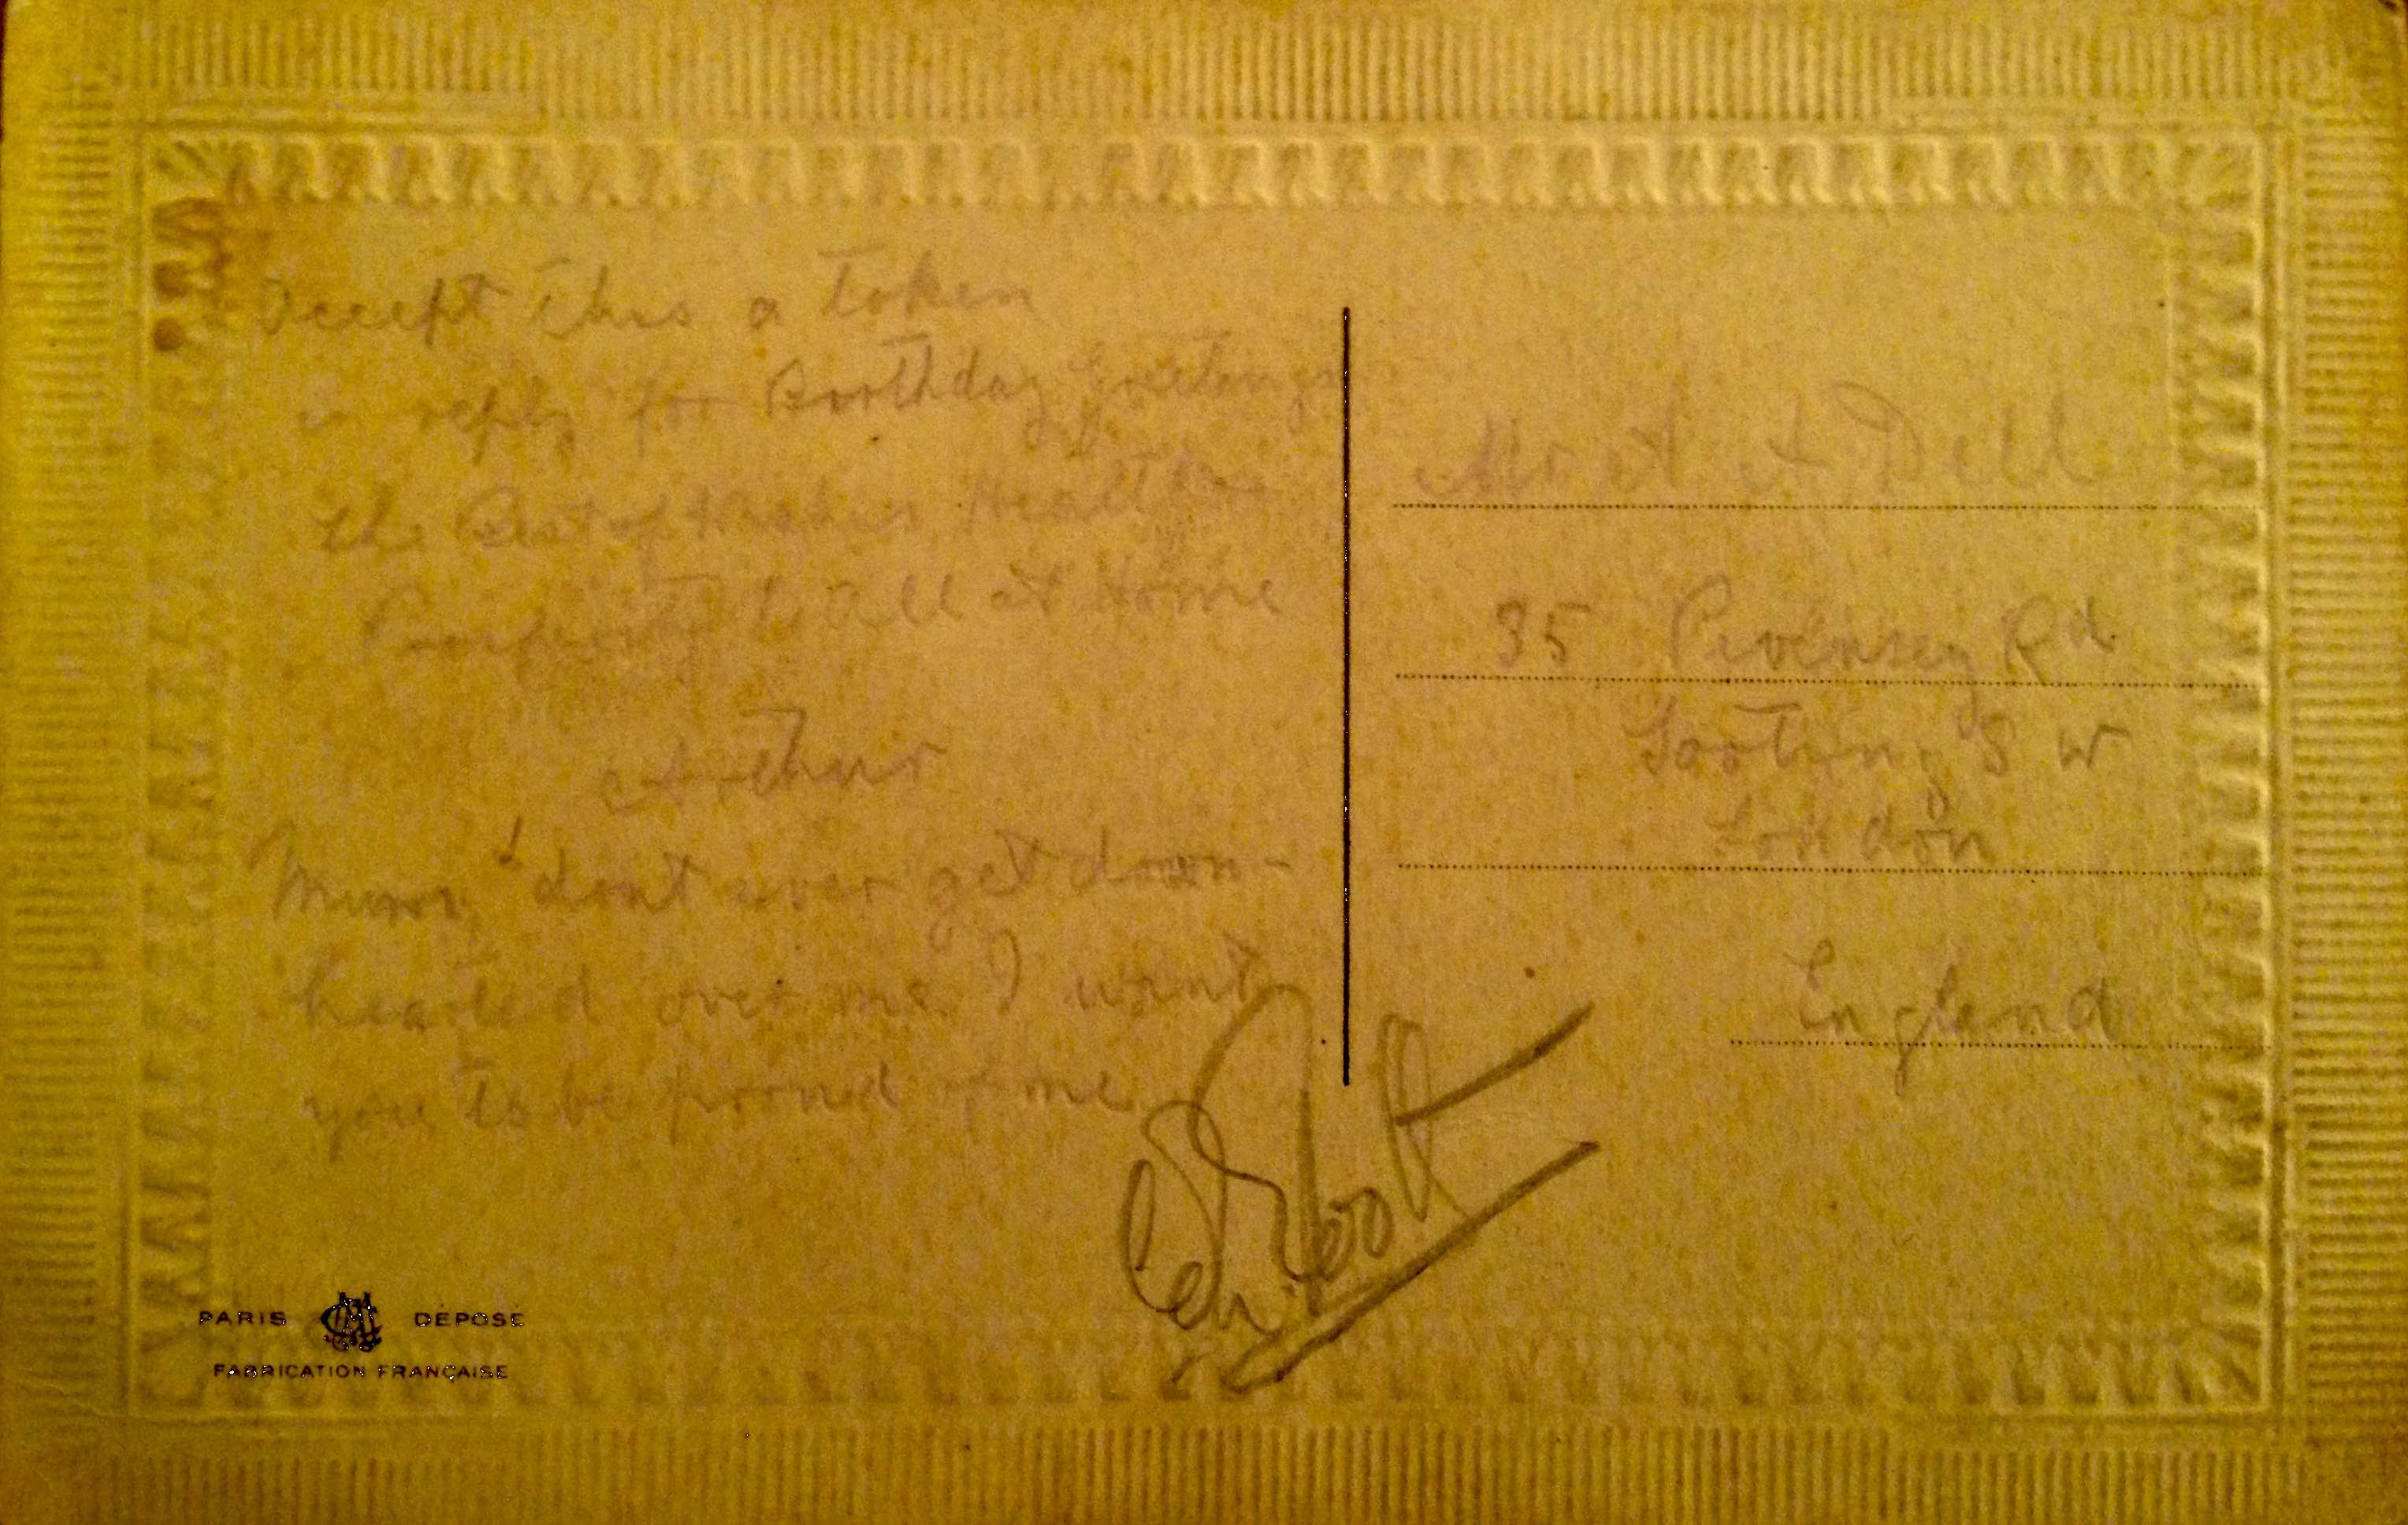 Accept this a token
in reply for Birthday Greetings
the Best of Wishes Health &
Prosperity to all at Home
Arthur
Mum, dont ever get down-
hearted over me I want
you to be proud of me
A Dell
35 Pevensey Rd
Tooting S W
London
England
PARIS DÉPOSÉ
FABRICATION FRANÇAISE